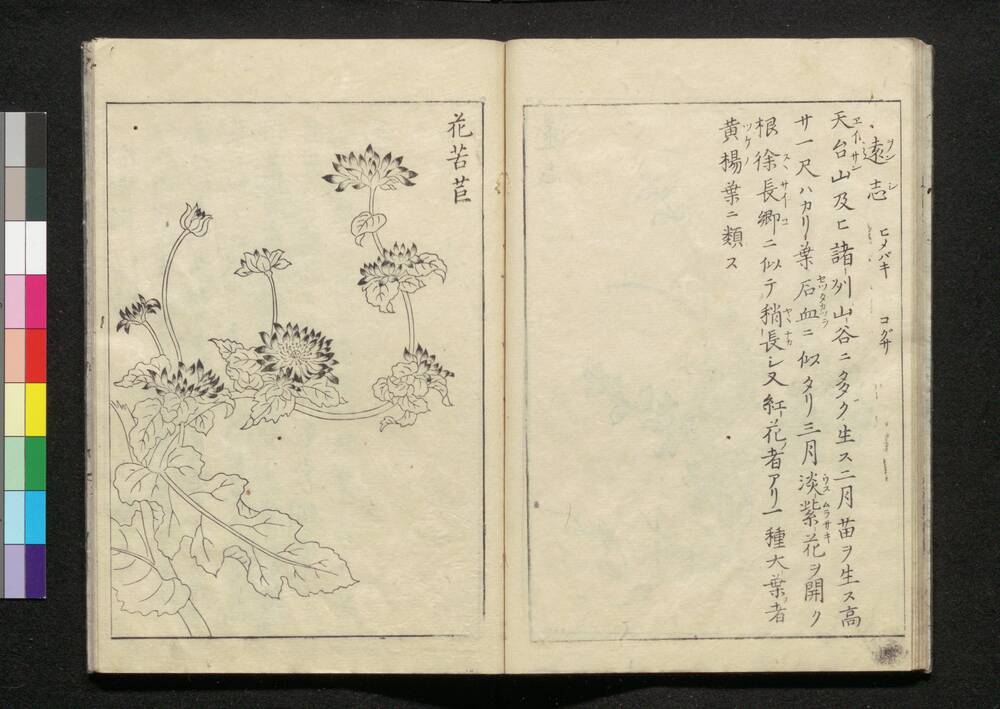 遠志 ヲンシ ヒメバキ コグサ
天台山及ヒ諸州山谷ニ多ク生ス二月苗ヲ生ス高
サ一尺ハカリ葉石血ニ似タリ三月淡紫花ヲ開ク
根徐長卿ニ似テ稍長シ又紅花者アリ一種大葉者
黄楊葉ニ類ス
花苦苣